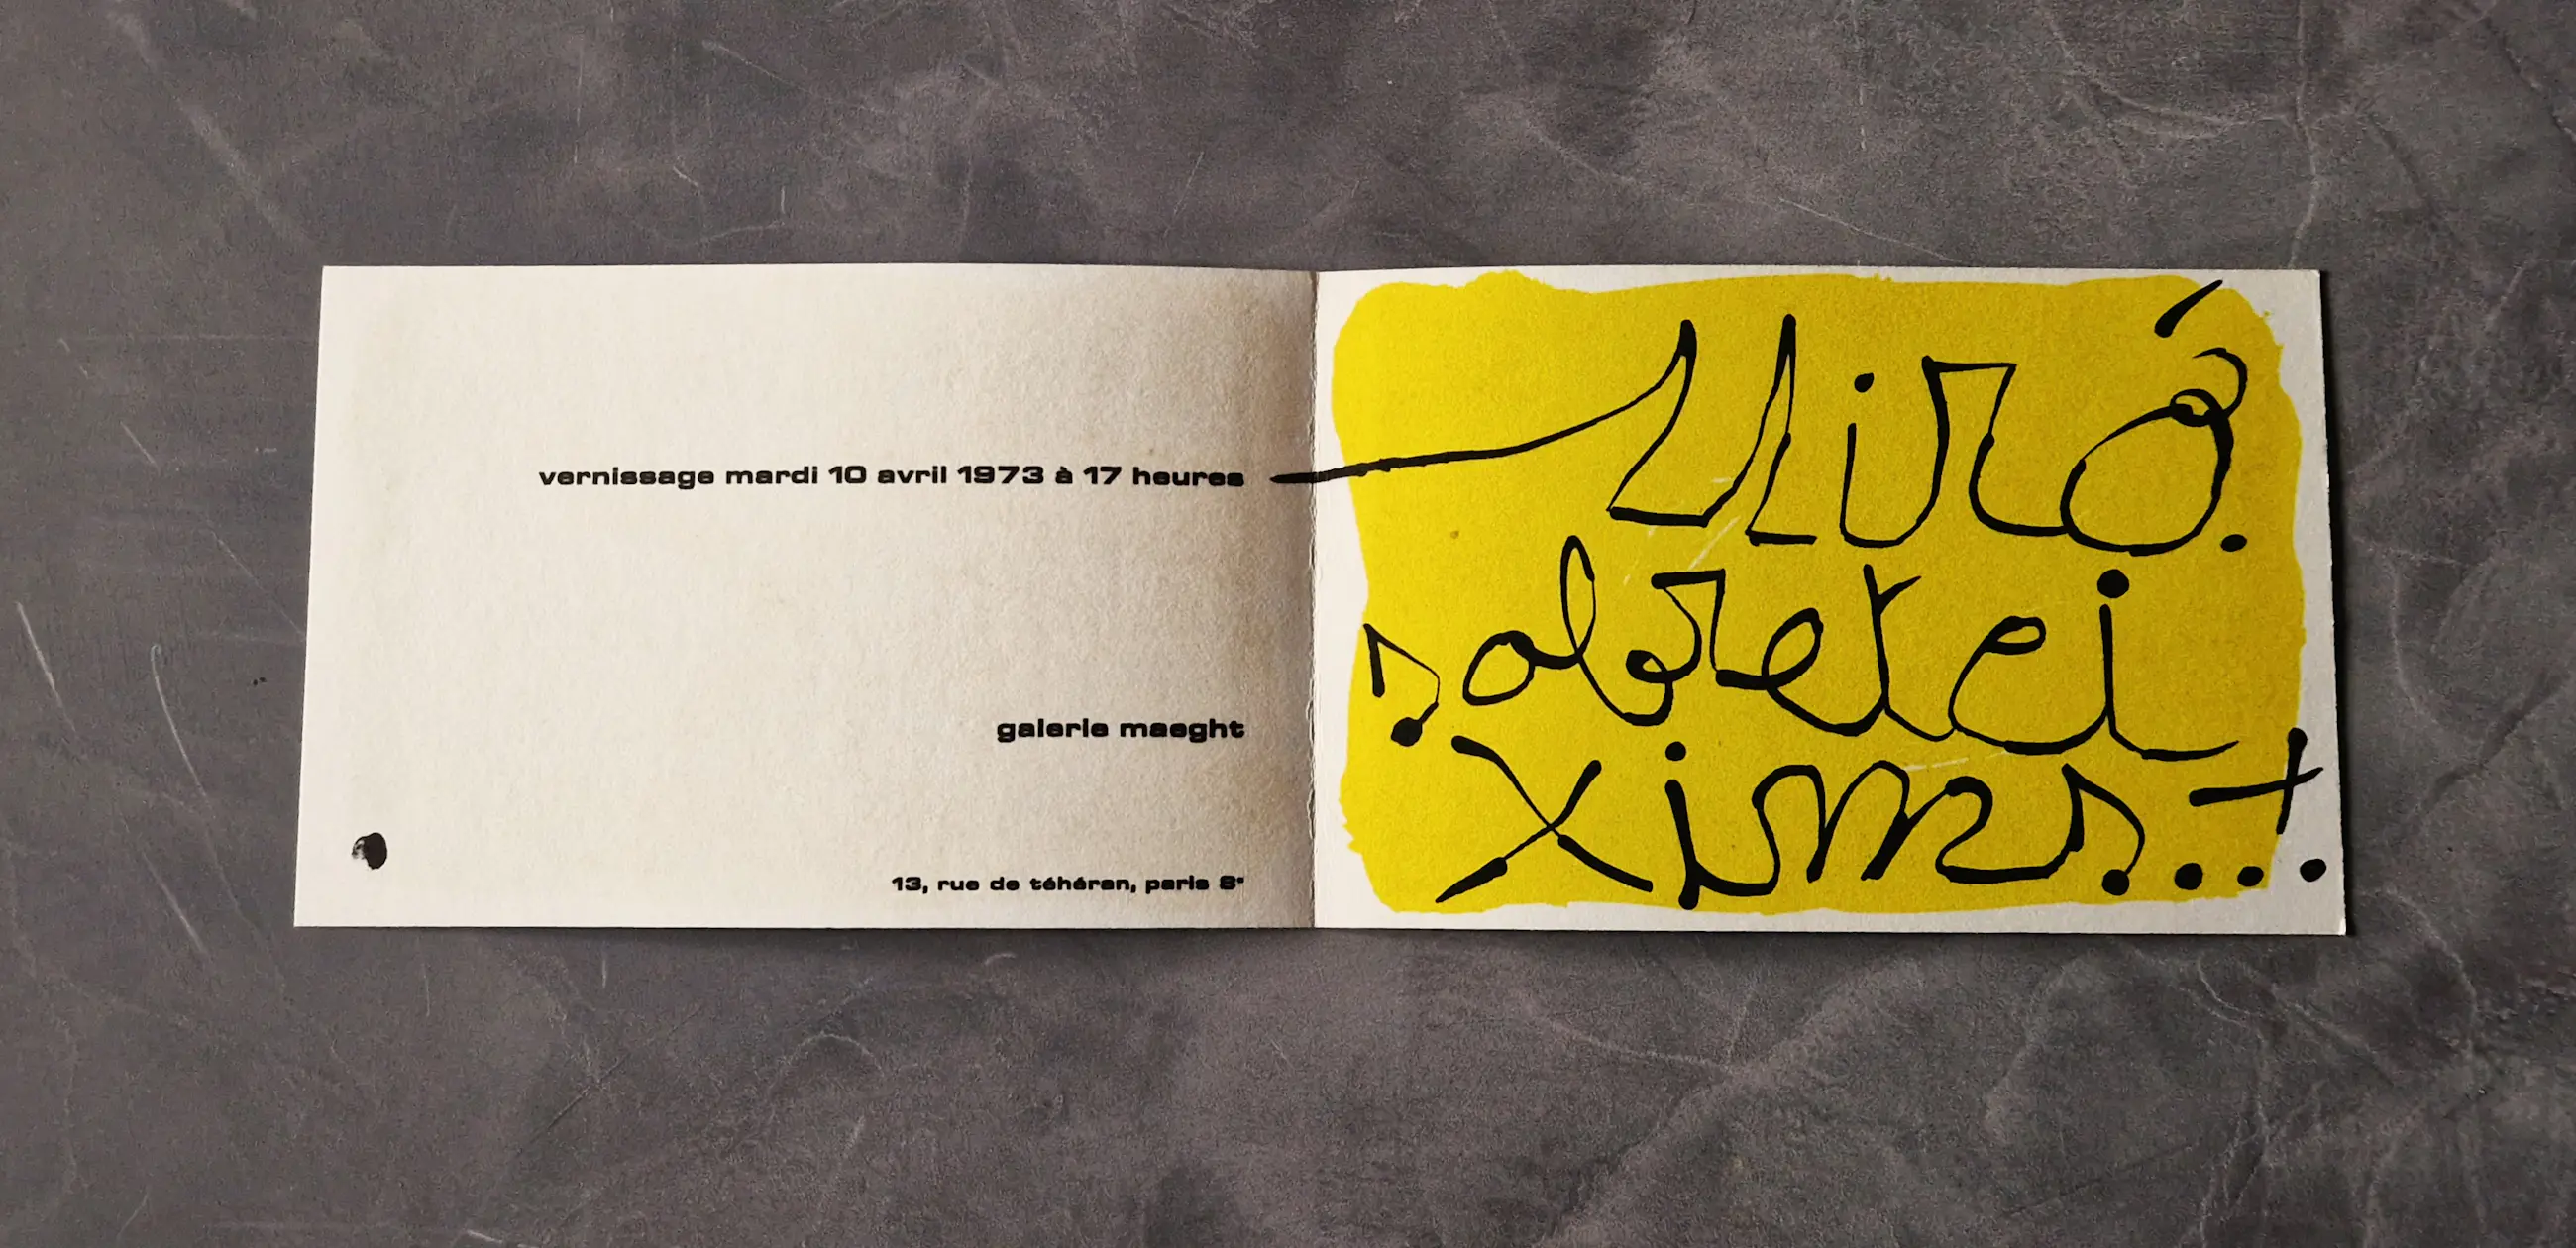 vernissage mardi 10 avril 1973 à 17 heures
galerie maeght
13, rue de téhéran, paris 8e
Miró.
sobretei
xims...+